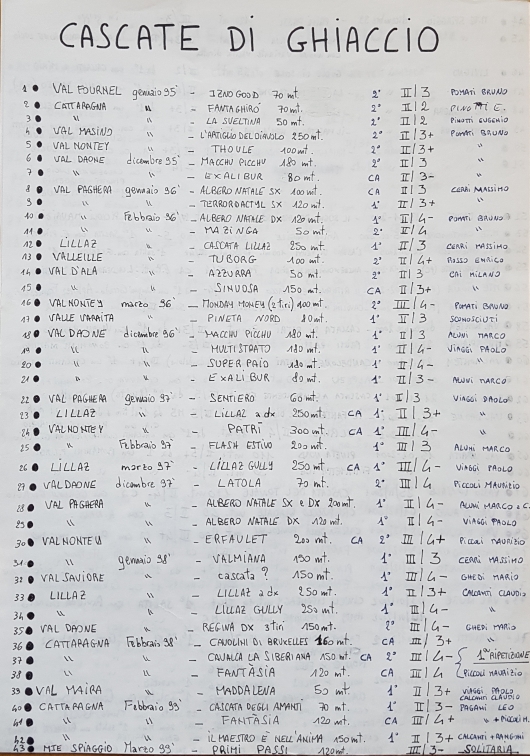 CASCATE DI GHIACCIO
1 ● VAL FOURNEL gennaio 95' - IZNOGOOD 70 mt. 2° II/3 POMATI BRUNO
2 ● CATTARAGNA " - FANTAGHIRÒ 70 mt. 2° II/2 PINOTTI E.
3 ● " " - LA SVELTINA 50 mt. 2° II/2 PINOTTI EUGENIO
4 ● VAL MASINO " - L'ARTIGLIO DEL DIAVOLO 250 mt. 2° II/3+ POMATI BRUNO
5 ● VALNONTEY " - THOULE 100 mt. 2° II/3+ "
6 ● VAL DAONE dicembre 95' - MACCHU PICCHU 180 mt. 2° II/3 "
7 ● " " - EXALIBUR 80 mt. CA II/3- "
8 ● VAL PAGHERA gennaio 96' - ALBERO NATALE SX 100 mt. CA II/3 CERRI MASSIMO
9 ● " " - TERRORDACTYL SX 120 mt. 1° II/3+ "
10 ● " Febbraio 96' - ALBERO NATALE DX 120 mt. 1° II/4- POMATI BRUNO
11 ● " " - MAZINGA 50 mt. 2° II/4 "
12 ● LILLAZ " - CASCATA LILLAZ 250 mt. 1° II/3 CERRI MASSIMO
13 ● VALLEILLE " - TUBORG 100 mt. 2° II/4+ ROSSO ENRICO
14 ● VAL D'ALA " - AZZURRA 50 mt. 2° II/3 CAI MILANO
15 ● " " - SINUOSA 150 mt. CA II/3+ "
16 ● VALNONTEY marzo 96' - MONDAY MONEY (2 tiri) 100 mt. 2° III/4- POMATI BRUNO
17 ● VALLE VARAITA " - PINETA NORD 80 mt. 1° II/3 SCONOSCIUTI
18 ● VAL DAONE dicembre 96' - MACCHU PICCHU 180 mt. 1° II/3 ALUNI MARCO
19 ● " " - MULTISTRATO 180 mt. 1° II/4- VIAGGI PAOLO
20 ● " " - SUPER PAIO 180 mt. 1° II/4- "
21 ● " " - EXALIBUR 80 mt. 1° II/3- ALUNI MARCO
22 ● VAL PAGHERA gennaio 97' - SENTIERO 60 mt. 1° II/3 VIAGGI PAOLO
23 ● LILLAZ " - LILLAZ a dx 250 mt. CA 1° II/3+ "
24 ● VALNONTEY " - PATRÌ 300 mt. CA 1° III/4- "
25 ● " Febbraio 97' - FLASH ESTIVO 200 mt. 1° III/3 ALUNI MARCO
26 ● LILLAZ marzo 97' - LILLAZ GULLY 250 mt. CA 1° III/4- VIAGGI PAOLO
27 ● VAL DAONE dicembre 97' - LATOLA 70 mt. 2° III/4- PICCOLI MAURIZIO
28 ● VAL PAGHERA " - ALBERO NATALE SX e DX 200 mt. 1° II/4- ALUNI MARCO + C.
29 ● " " - ALBERO NATALE DX 120 mt. 1° II/4- VIAGGI PAOLO
30 ● VALNONTEY " - ERFAULET 200 mt. CA 2° III/4+ PICCOLI MAURIZIO
31 ● " gennaio 98' - VALMIANA 150 mt. 1° III/3 CERRI MASSIMO
32 ● VAL SAVIORE " - cascata ? 150 mt. 1° III/4- GHEDI MARIO
33 ● LILLAZ " - LILLAZ a dx 250 mt. 1° II/3+ CALCANTI CLAUDIO
34 ● " " - LILLAZ GULLY 250 mt. 1° III/4- "
35 ● VAL DAONE " - REGINA DX 3 tiri 150 mt. 2° III/4- GHEDI MARIO
36 ● CATTARAGNA Febbraio 98' - CAVOLINI DI BRUXELLES 160 mt. CA III/3+ "
37 ● " " - CAVALCA LA SIBERIANA 150 mt. CA 2° III/4- { 1° RIPETIZIONE
38 ● " " - FANTÀSIA 120 mt. CA III/4- PICCOLI MAURIZIO
39 ● VAL MAIRA " - MADDALENA 50 mt 1° II/3+ VIAGGI PAOLO CALCANTI CLAUDIO
40 ● CATTARAGNA Febbraio 99' - CASCATA DEGLI AMANTI 70 mt. CA II/3- PAGANI LEO
41 ● " " - FANTÀSIA 120 mt. CA III/4+ " + PICCOLI M.
42 ● " " - IL MAESTRO E NELL'ANIMA 150 mt. 1° II/3+ CALCANTI +
43 ● MTE SPIAGGIO Marzo 99' - PRIMI PASSI 120 mt. III/3- SOLITARIA